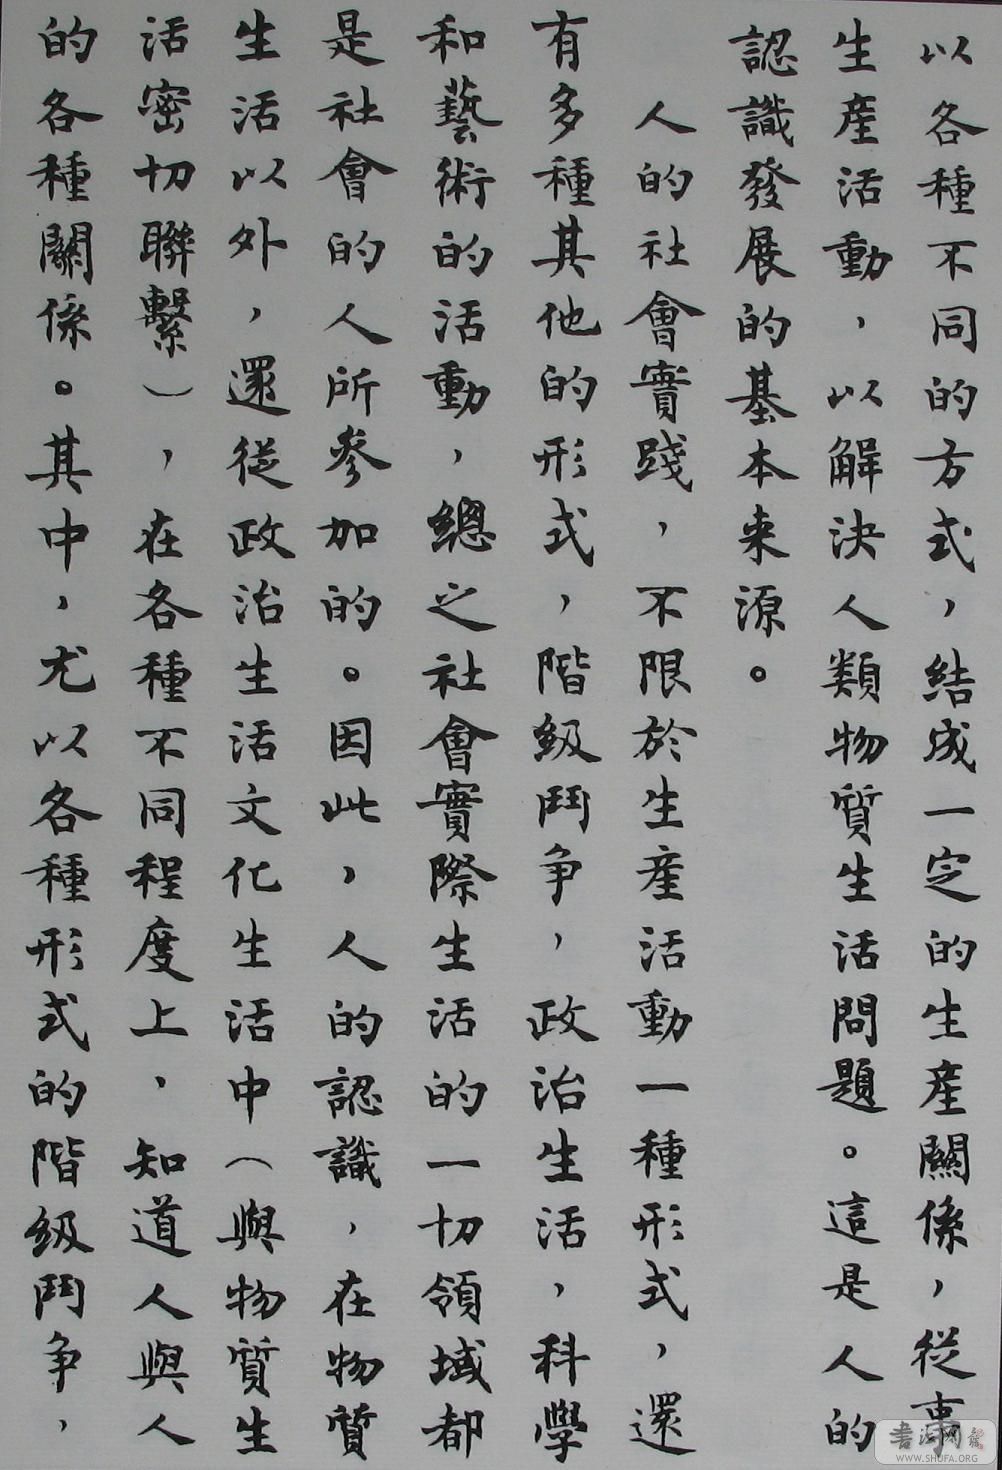 以各種不同的方式，結成一定的生産關係，從事
生産活動，以解決人類物質生活問題。這是人的
認識發展的基本来源。
人的社會實踐，不限於生産活動一種形式，還
有多種其他的形式，階級鬥争，政治生活，科學
和藝術的活動，總之社會實際生活的一切領域都
是社會的人所參加的。因此，人的認識，在物質
生活以外，還從政治生活文化生活中（與物質生
活密切聯繫），在各種不同程度上，知道人與人
的各種關係。其中，尤以各種形式的階級鬥争，
WWW.SHUFA.ORG